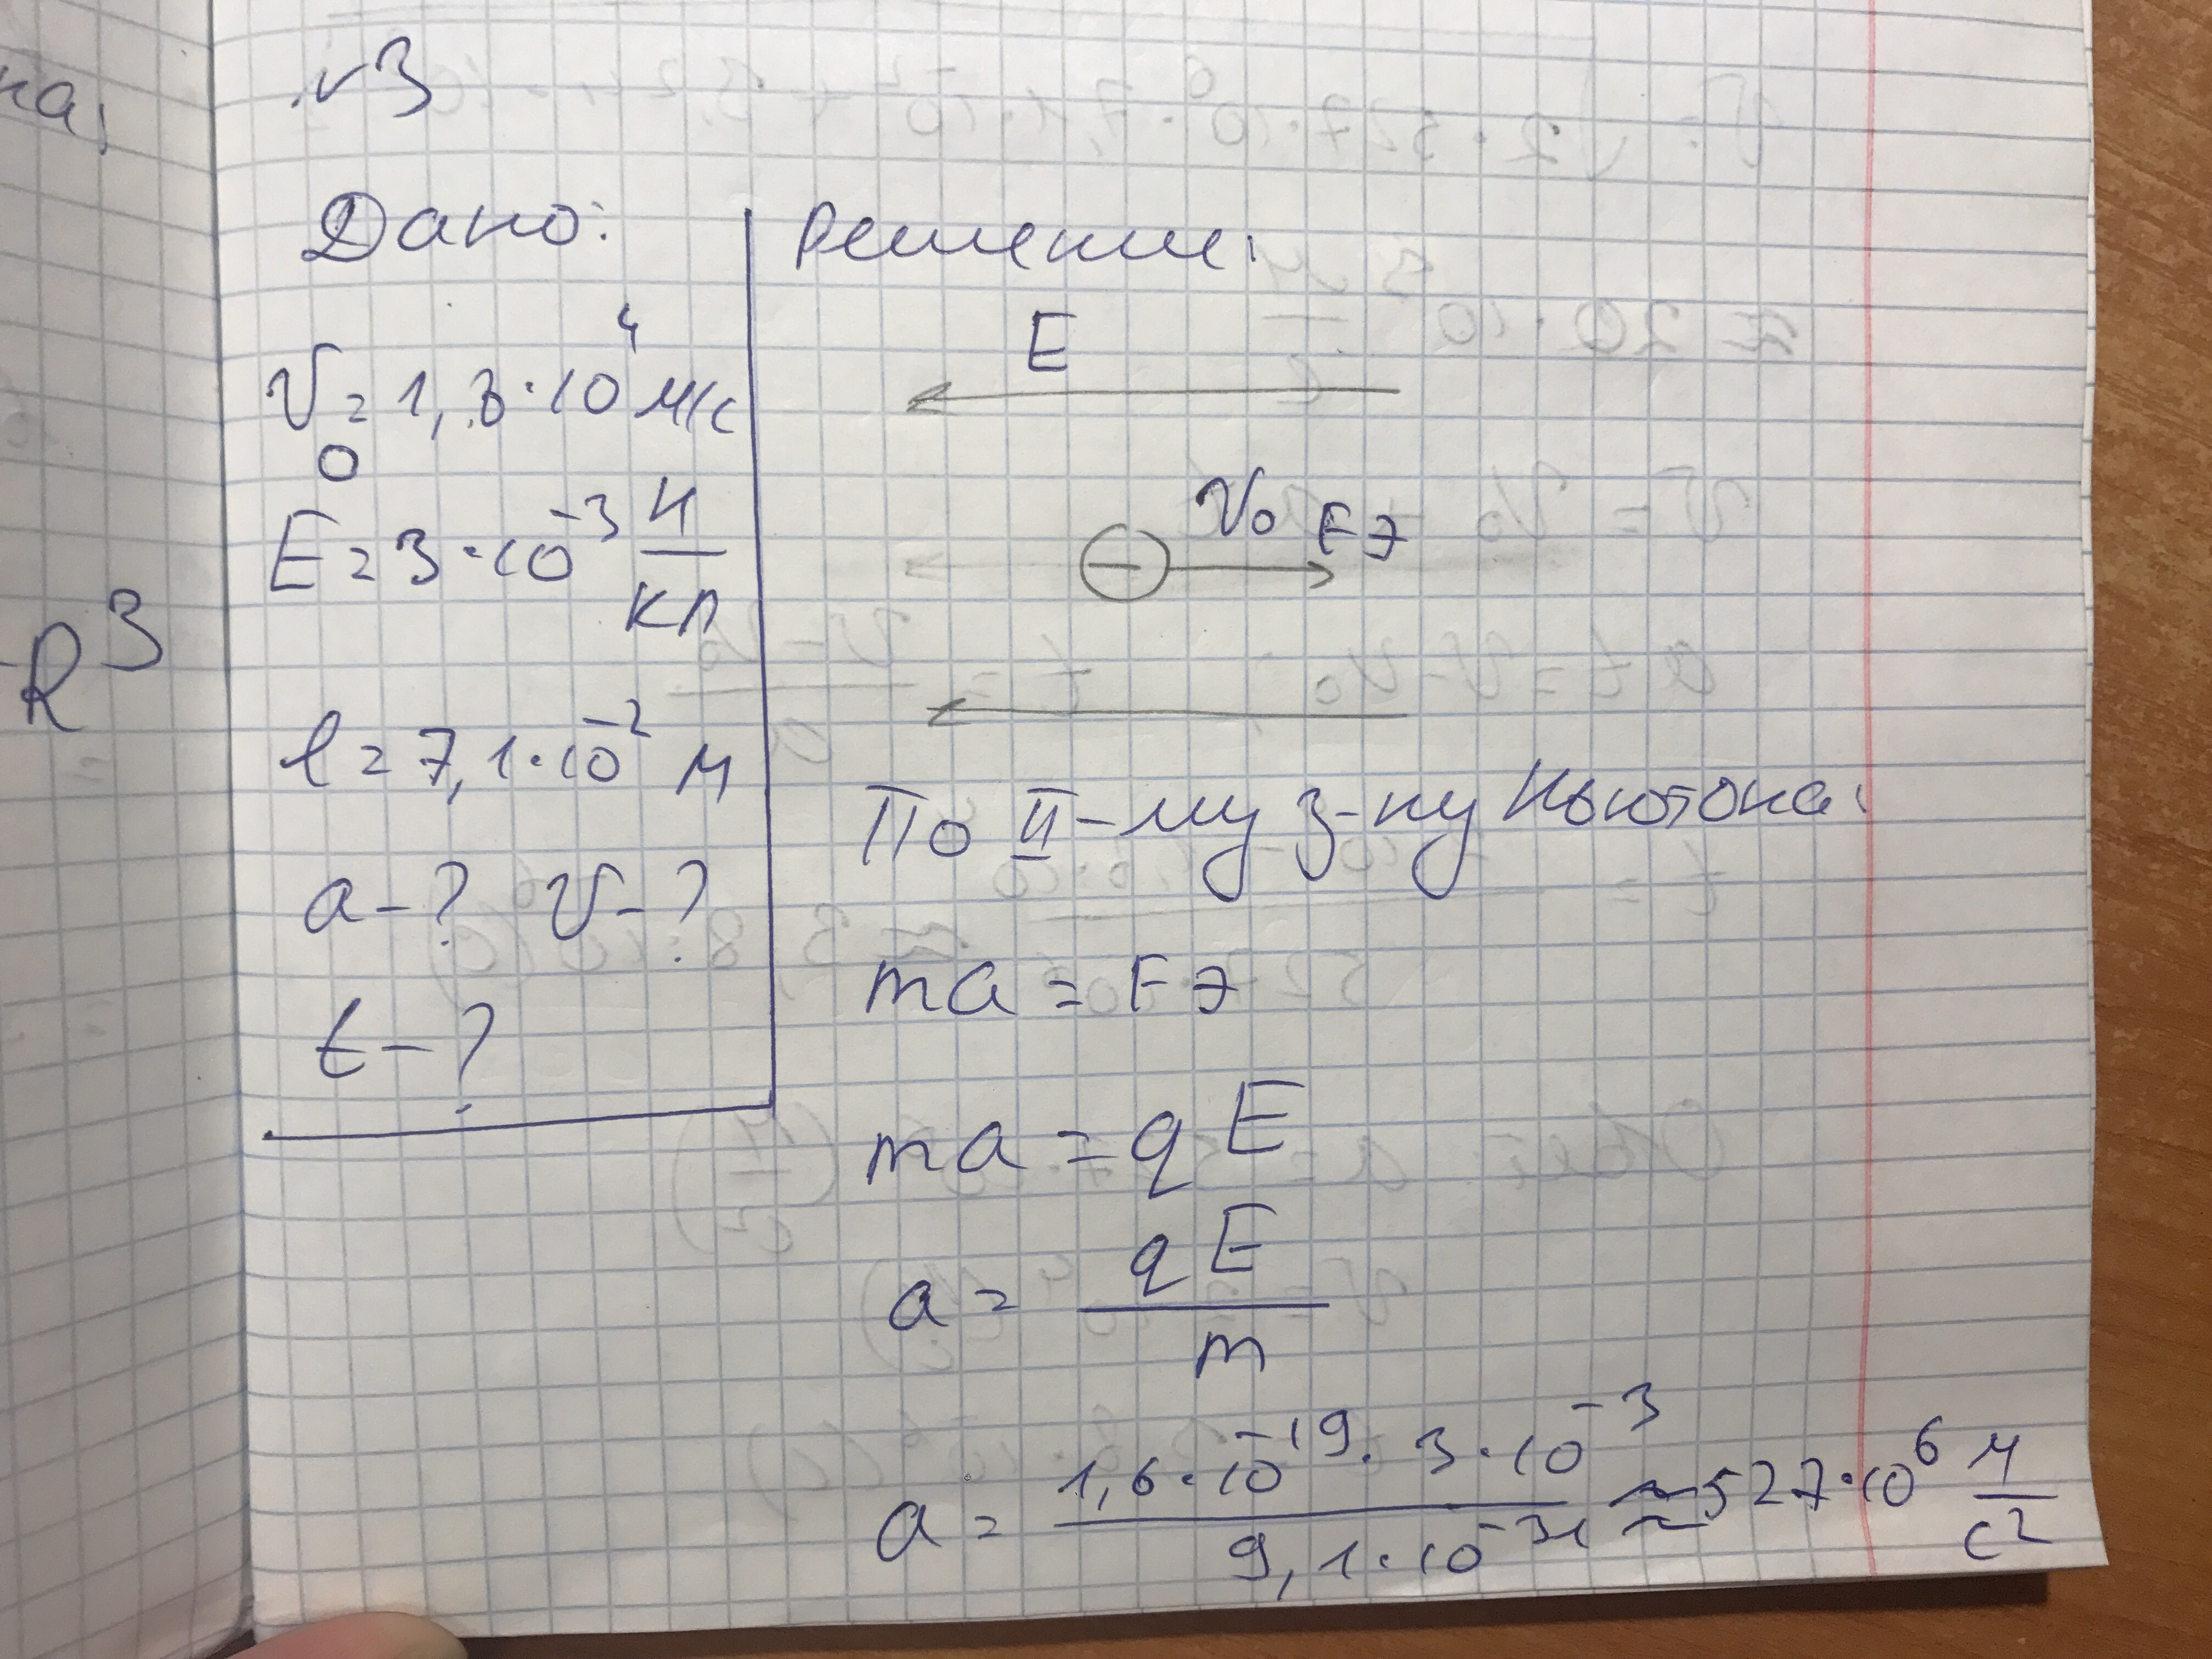 на,
R³
№3
Дано:
v₀ = 1,8·10⁴ м/с
E = 3·10⁻³ Н/Кл
l = 7,1·10⁻² м
a - ? v - ?
t - ?
Решение:
E
v₀ Fэ
−
По II-му з-ну Ньютона:
ma = Fэ
ma = qE
a = qE/m
a = 1,6·10⁻¹⁹·3·10⁻³/9,1·10⁻³¹ ≈ 527·10⁶ м/с²